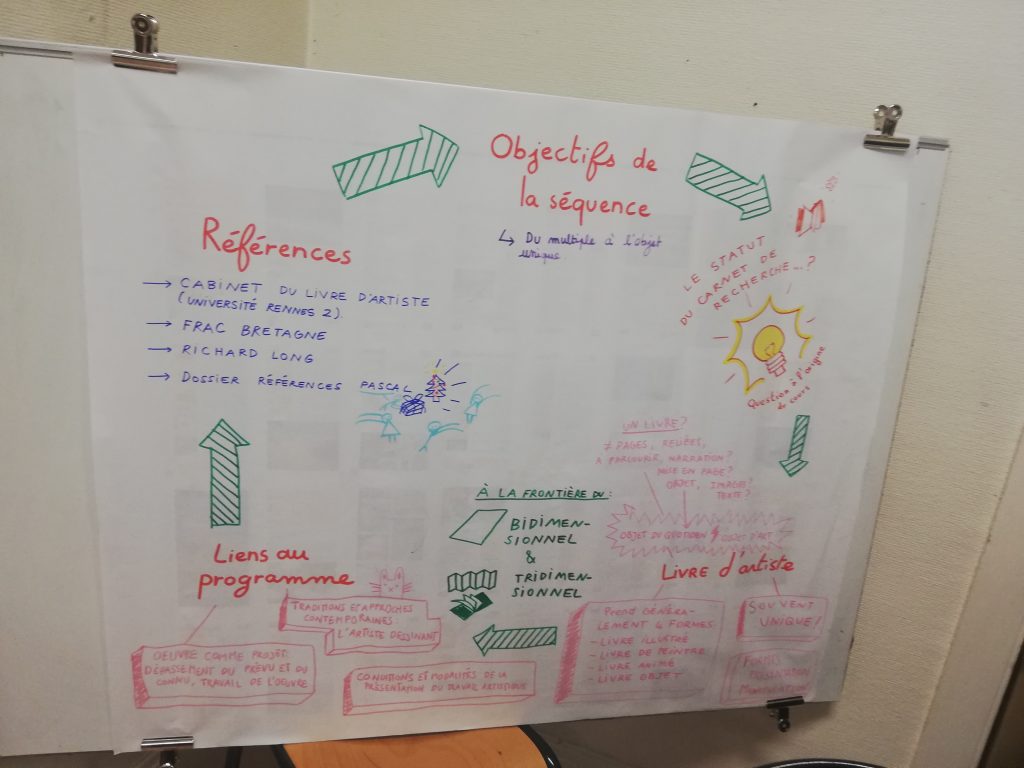 Objectifs de
la séquence
↳ Du multiple à l'objet
unique
LE STATUT
DU CARNET DE
RECHERCHE...?
Question à l'origine
du cours
UN LIVRE?
≠ PAGES, RELIÉES,
A PARCOURIR, NARRATION?
MISE EN PAGE?
OBJET, IMAGES?
TEXTE?
OBJET DU QUOTIDIEN OBJET D'ART
LIVRE d'artiste
Prend GÉNÉRA-
LEMENT 4 FORMES
- LIVRE ILLUSTRÉ
- LIVRE DE PEINTRE
- LIVRE ANIMÉ
- LIVRE OBJET
SOUVENT
UNIQUE!
À LA FRONTIÈRE DU:
BIDIMEN-
SIONNEL
&
TRIDIMEN-
SIONNEL
Liens au
programme
TRADITIONS ET APPROCHES
CONTEMPORAINES:
L'ARTISTE DESSINANT
OEUVRE COMME PROJET:
DÉPASSEMENT DU PRÉVU ET DU
CONNU, TRAVAIL DE L'OEUVRE
CONDITIONS ET MODALITÉS DE LA
PRÉSENTATION DU TRAVAIL ARTISTIQUE
Références
→ CABINET DU LIVRE D'ARTISTE
(UNIVERSITÉ RENNES 2).
→ FRAC BRETAGNE
→ RICHARD LONG
→ DOSSIER RÉFÉRENCES PASCAL